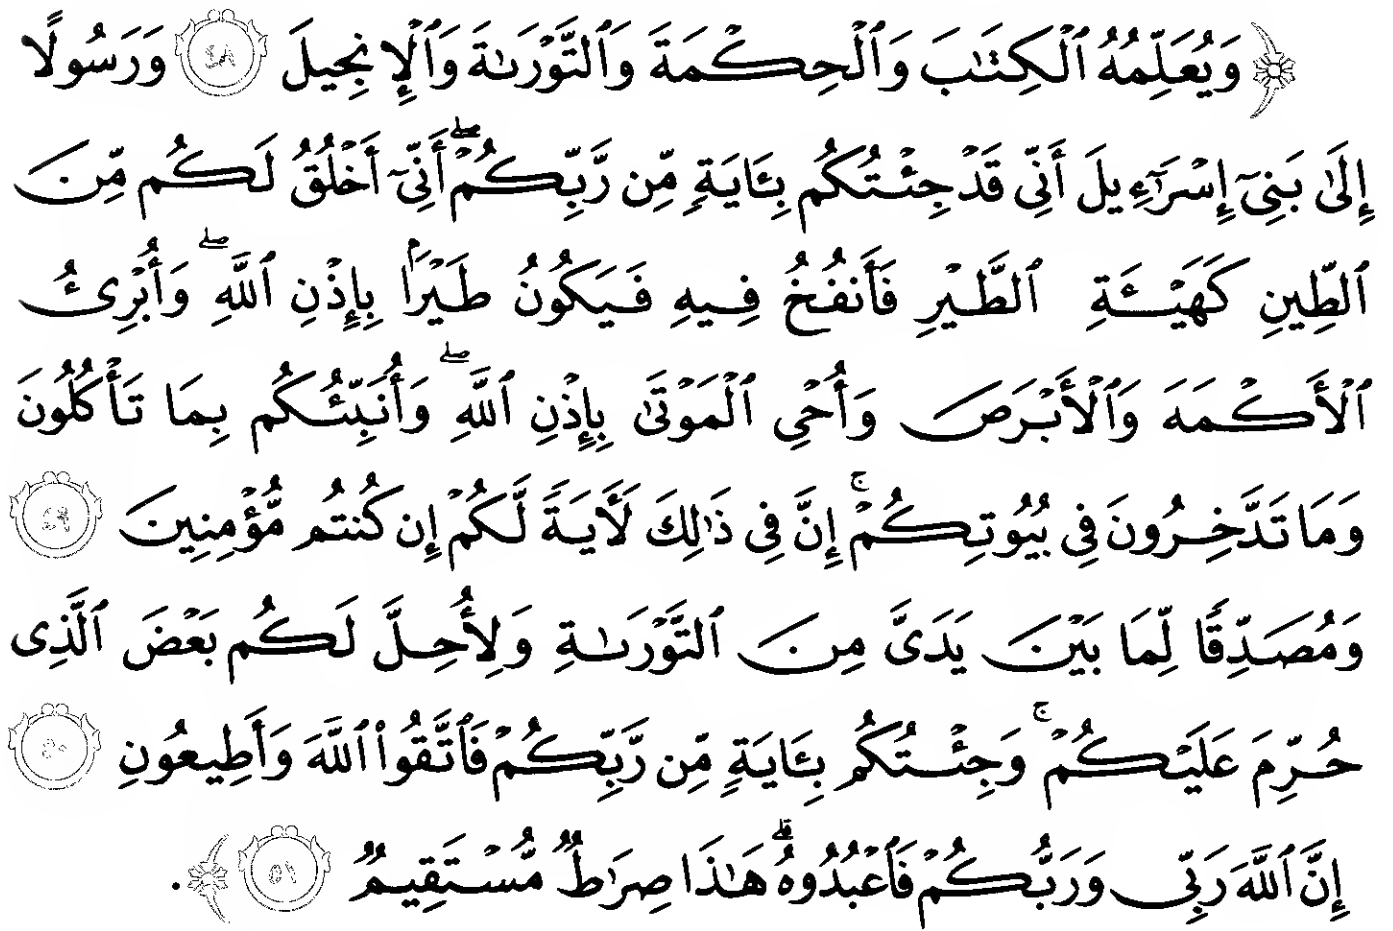 ﴿وَيُعَلِّمُهُ ٱلْكِتَٰبَ وَٱلْحِكْمَةَ وَٱلتَّوْرَىٰةَ وَٱلْإِنجِيلَ ٤٨ وَرَسُولًا
إِلَىٰ بَنِىٓ إِسْرَٰٓءِيلَ أَنِّى قَدْ جِئْتُكُم بِـَٔايَةٍ مِّن رَّبِّكُمْ ۖ أَنِّىٓ أَخْلُقُ لَكُم مِّنَ
ٱلطِّينِ كَهَيْـَٔةِ ٱلطَّيْرِ فَأَنفُخُ فِيهِ فَيَكُونُ طَيْرًۢا بِإِذْنِ ٱللَّهِ ۖ وَأُبْرِئُ
ٱلْأَكْمَهَ وَٱلْأَبْرَصَ وَأُحْىِ ٱلْمَوْتَىٰ بِإِذْنِ ٱللَّهِ ۖ وَأُنَبِّئُكُم بِمَا تَأْكُلُونَ
وَمَا تَدَّخِرُونَ فِى بُيُوتِكُمْ ۚ إِنَّ فِى ذَٰلِكَ لَـَٔايَةً لَّكُمْ إِن كُنتُم مُّؤْمِنِينَ ٤٩
وَمُصَدِّقًا لِّمَا بَيْنَ يَدَىَّ مِنَ ٱلتَّوْرَىٰةِ وَلِأُحِلَّ لَكُم بَعْضَ ٱلَّذِى
حُرِّمَ عَلَيْكُمْ ۚ وَجِئْتُكُم بِـَٔايَةٍ مِّن رَّبِّكُمْ فَٱتَّقُوا۟ ٱللَّهَ وَأَطِيعُونِ ٥٠
إِنَّ ٱللَّهَ رَبِّى وَرَبُّكُمْ فَٱعْبُدُوهُ ۗ هَٰذَا صِرَٰطٌ مُّسْتَقِيمٌ ٥١﴾.